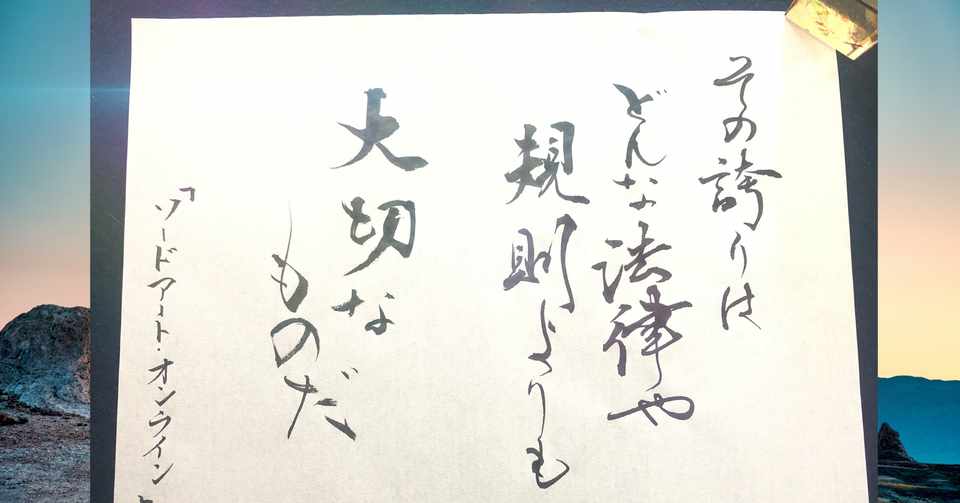 その誇りは
どんな法律や
規則よりも
大切な
ものだ
「ソードアート・オンライン